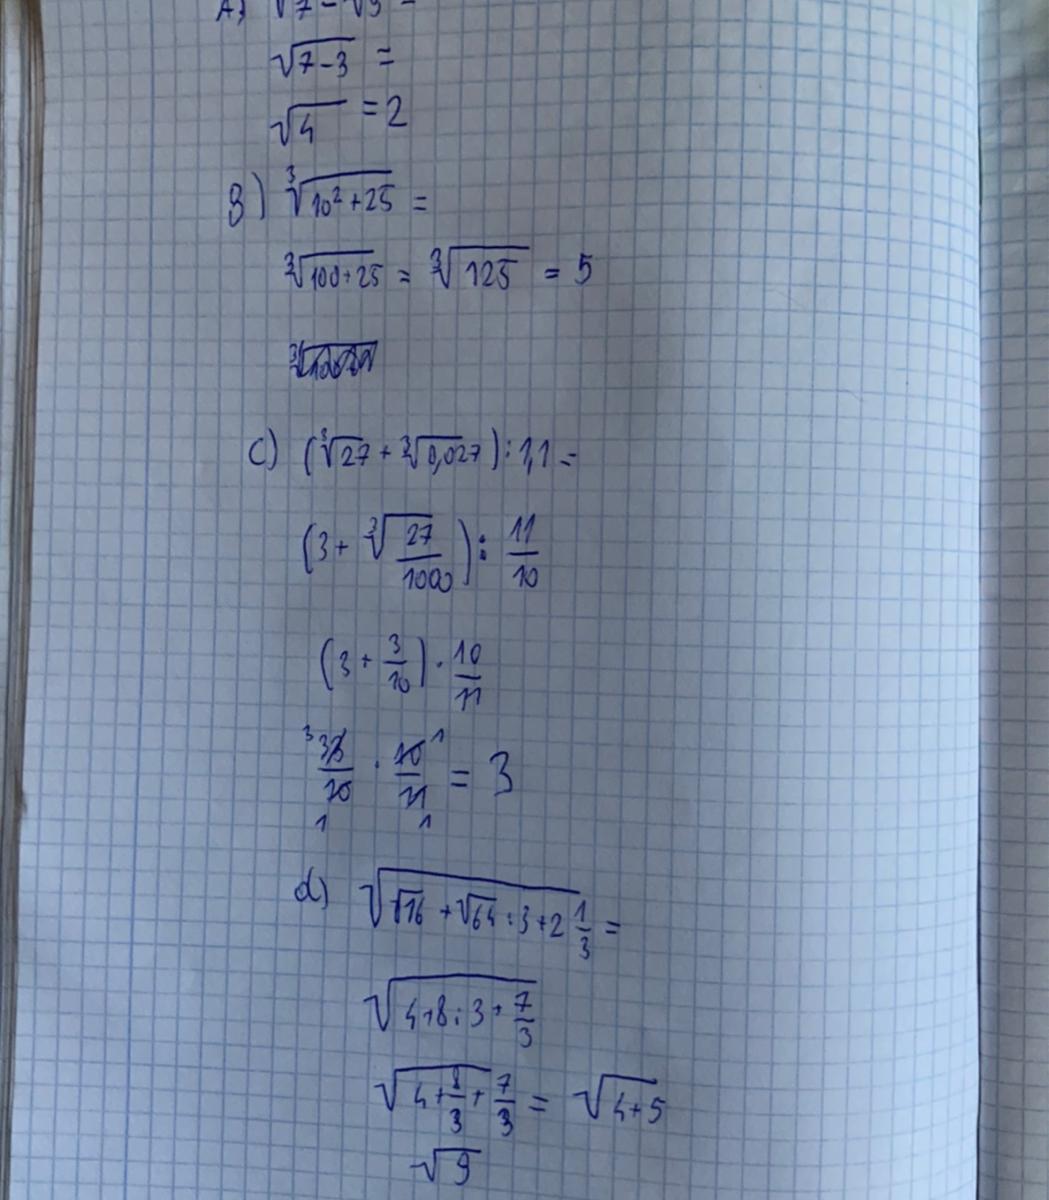 A) √7 - √9 =
√7-3 =
√4 = 2
B) ³√10²+25 =
³√100+25 = ³√125 = 5
C) (³√27 + ³√0,027) : 1,1 =
(3 + ³√27/1000) : 11/10
(3 + 3/10) · 10/11
³ 33/10 · 10/11 ¹ = 3
1 1
d) √√16 + √64 : 3 + 2 1/3 =
√4+8:3+7/3
√4+8/3+7/3 = √4+5
√9